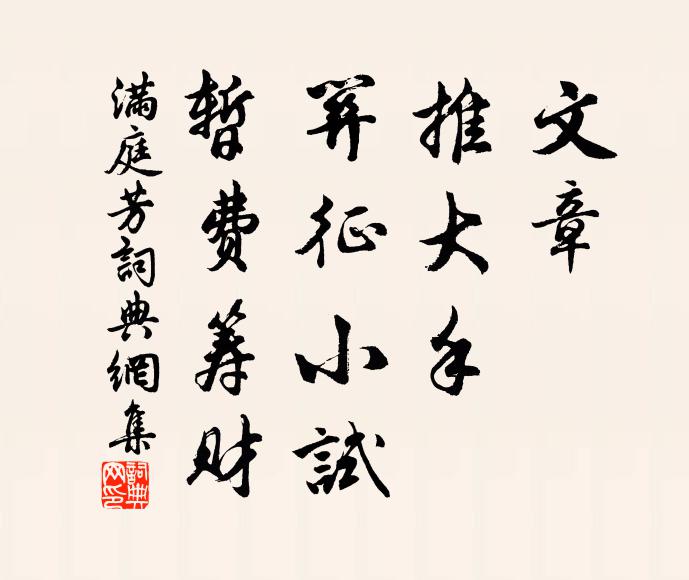 文章
推大手
筭征小試
暫费筹财
滿庭芳詞典網集
詞典网印